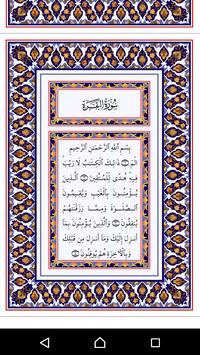 سُورَةُ الْبَقَرَةِ
بِسْمِ اللَّهِ الرَّحْمَٰنِ الرَّحِيمِ
الٓمٓ ۝ ذَٰلِكَ الْكِتَابُ لَا رَيْبَ
فِيهِ هُدًى لِّلْمُتَّقِينَ ۝ الَّذِينَ
يُؤْمِنُونَ بِالْغَيْبِ وَيُقِيمُونَ
الصَّلَوٰةَ وَمِمَّا رَزَقْنَٰهُمْ
يُنفِقُونَ ۝ وَالَّذِينَ يُؤْمِنُونَ بِمَا
أُنزِلَ إِلَيْكَ وَمَا أُنزِلَ مِن قَبْلِكَ
وَبِالْآخِرَةِ هُمْ يُوقِنُونَ ۝